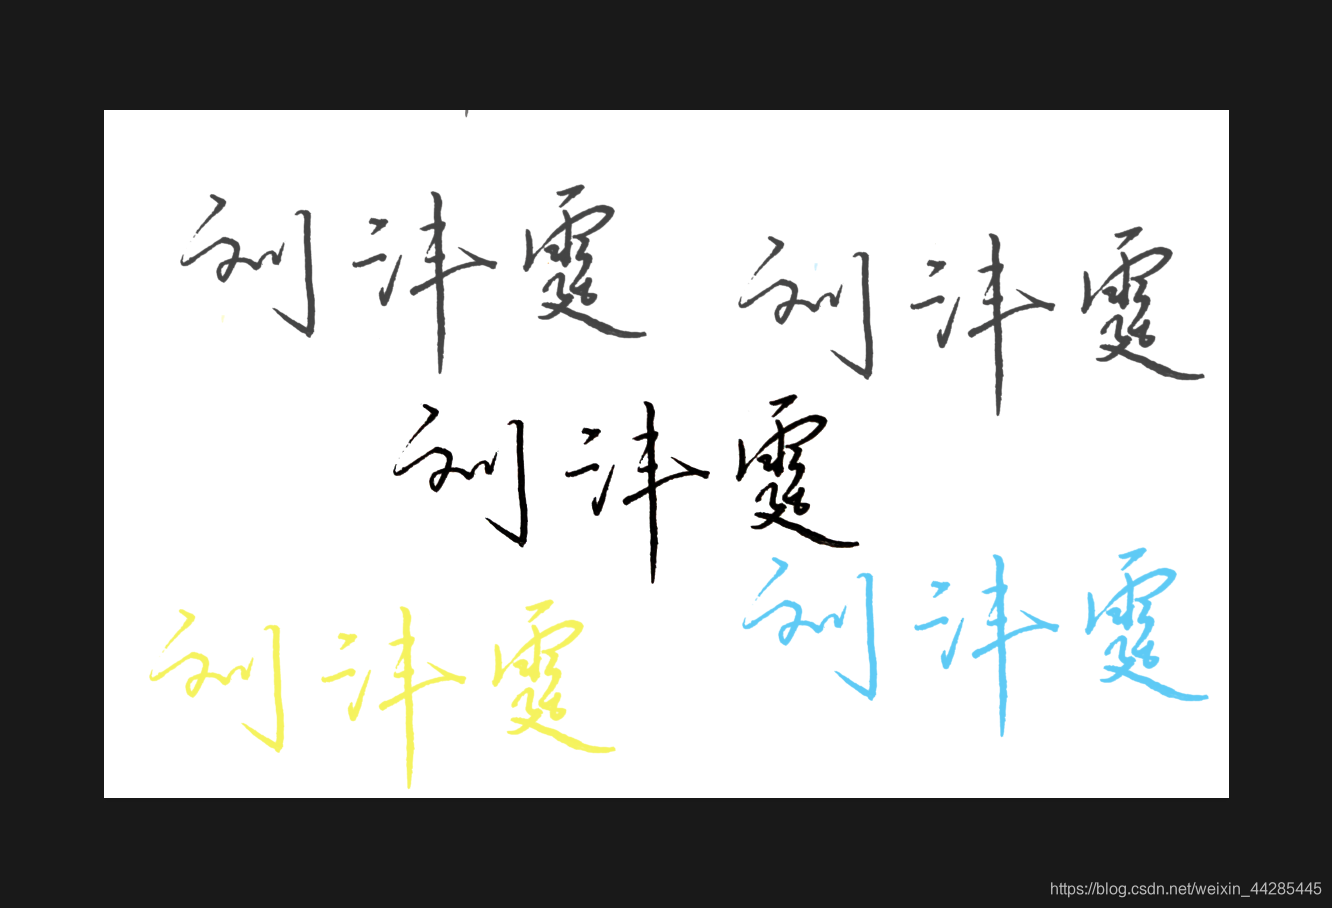 刘沣霆
刘沣霆
刘沣霆
刘沣霆
刘沣霆
https://blog.csdn.net/weixin_44285445